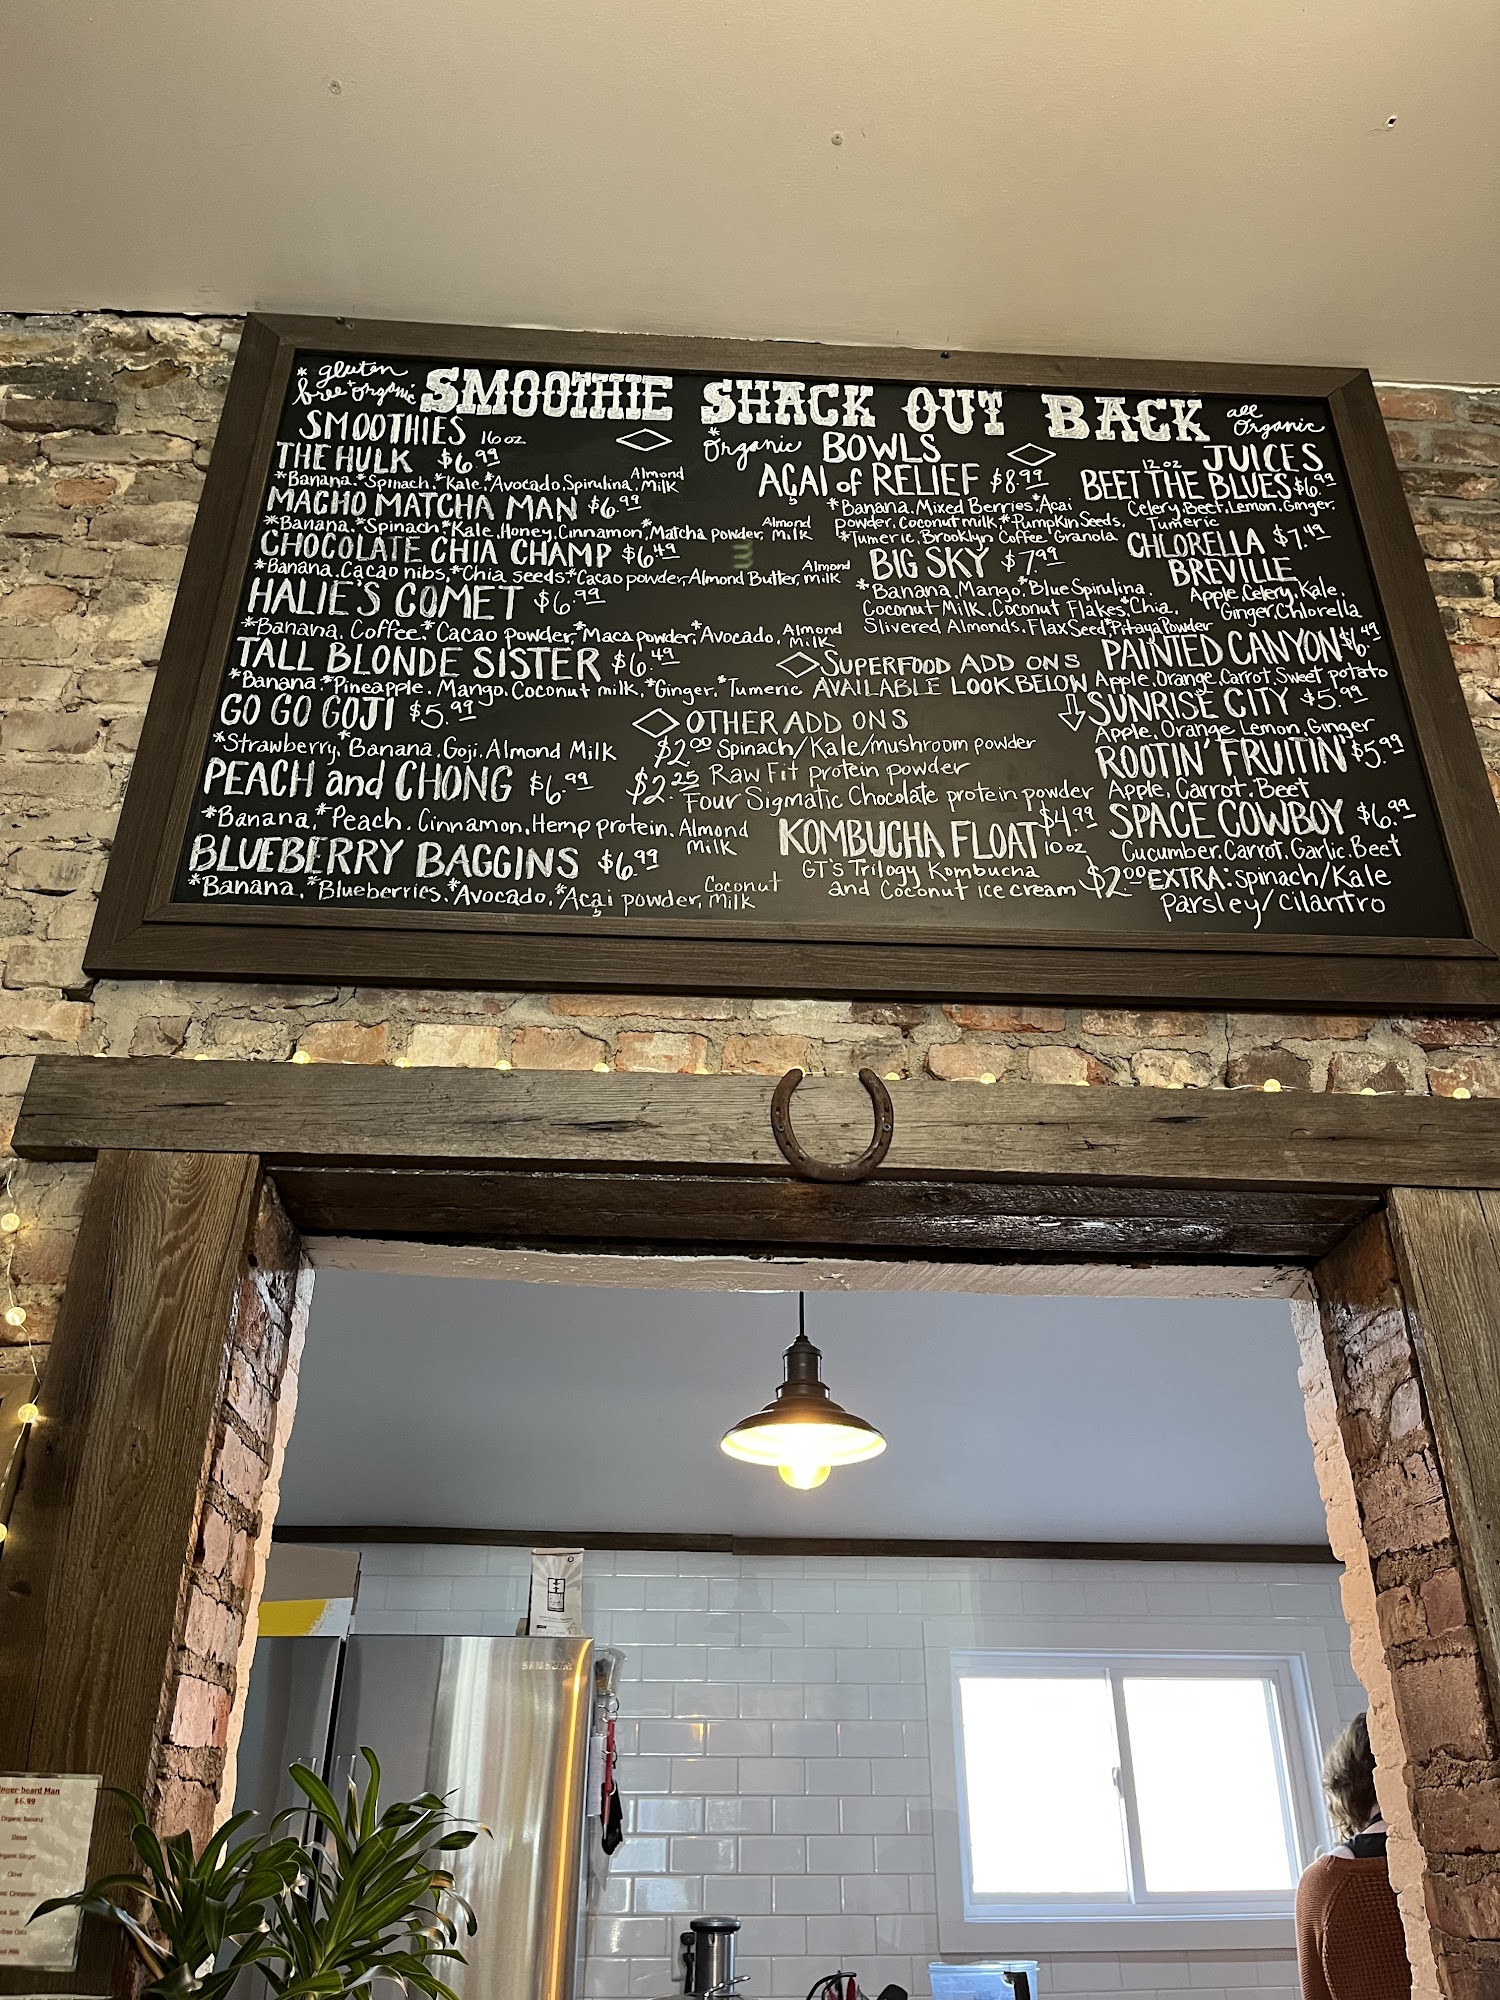 * gluten
free + organic
SMOOTHIE SHACK OUT BACK
SMOOTHIES 16 oz
THE HULK $6.99
*Banana, *Spinach, *Kale, *Avocado, Spirulina, Almond Milk
MACHO MATCHA MAN $6.99
*Banana, *Spinach *Kale, Honey, Cinnamon, *Matcha powder, Almond Milk
CHOCOLATE CHIA CHAMP $6.49
*Banana, Cacao nibs, *Chia seeds *Cacao powder, Almond Butter, Almond milk
HALIE'S COMET $6.99
*Banana, Coffee, *Cacao powder, *Maca powder, *Avocado, Almond Milk
TALL BLONDE SISTER $6.49
*Banana *Pineapple, Mango, Coconut milk, *Ginger, *Tumeric
GO GO GOJI $5.99
*Strawberry, *Banana, Goji, Almond Milk
PEACH and CHONG $6.99
*Banana, *Peach, Cinnamon, Hemp protein, Almond Milk
BLUEBERRY BAGGINS $6.99
*Banana, *Blueberries, *Avocado, *Açai powder, Coconut Milk
*Organic BOWLS
AÇAI of RELIEF $8.99
*Banana, Mixed Berries, *Acai
powder, Coconut milk, *Pumpkin Seeds,
*Tumeric, Brooklyn Coffee Granola
BIG SKY $7.99
*Banana, Mango, *Blue Spirulina,
Coconut Milk, Coconut Flakes, *Chia,
Slivered Almonds, Flax Seed, *Pitaya Powder
SUPERFOOD ADD ONS
AVAILABLE LOOK BELOW
OTHER ADD ONS
$2.00 Spinach/Kale/mushroom powder
$2.25 Raw Fit protein powder
Four Sigmatic Chocolate protein powder
KOMBUCHA FLOAT $4.99
10 oz
GT'S Trilogy Kombucha
and Coconut ice cream
all
Organic
JUICES
12 oz
BEET THE BLUES $6.99
Celery, Beet, Lemon, Ginger,
Tumeric
CHLORELLA $7.49
BREVILLE
Apple, Celery, Kale,
Ginger, Chlorella
PAINTED CANYON $6.49
Apple, Orange, Carrot, Sweet potato
SUNRISE CITY $5.99
Apple, Orange, Lemon, Ginger
ROOTIN' FRUITIN' $5.99
Apple, Carrot, Beet
SPACE COWBOY $6.99
Cucumber, Carrot, Garlic, Beet
$2.00 EXTRA: spinach/Kale
parsley/cilantro
SAMSUNG
beard Man
$6.99
Organic Banana
Dates
Organic Ginger
Clove
Cinnamon
Salt
Oats
Milk